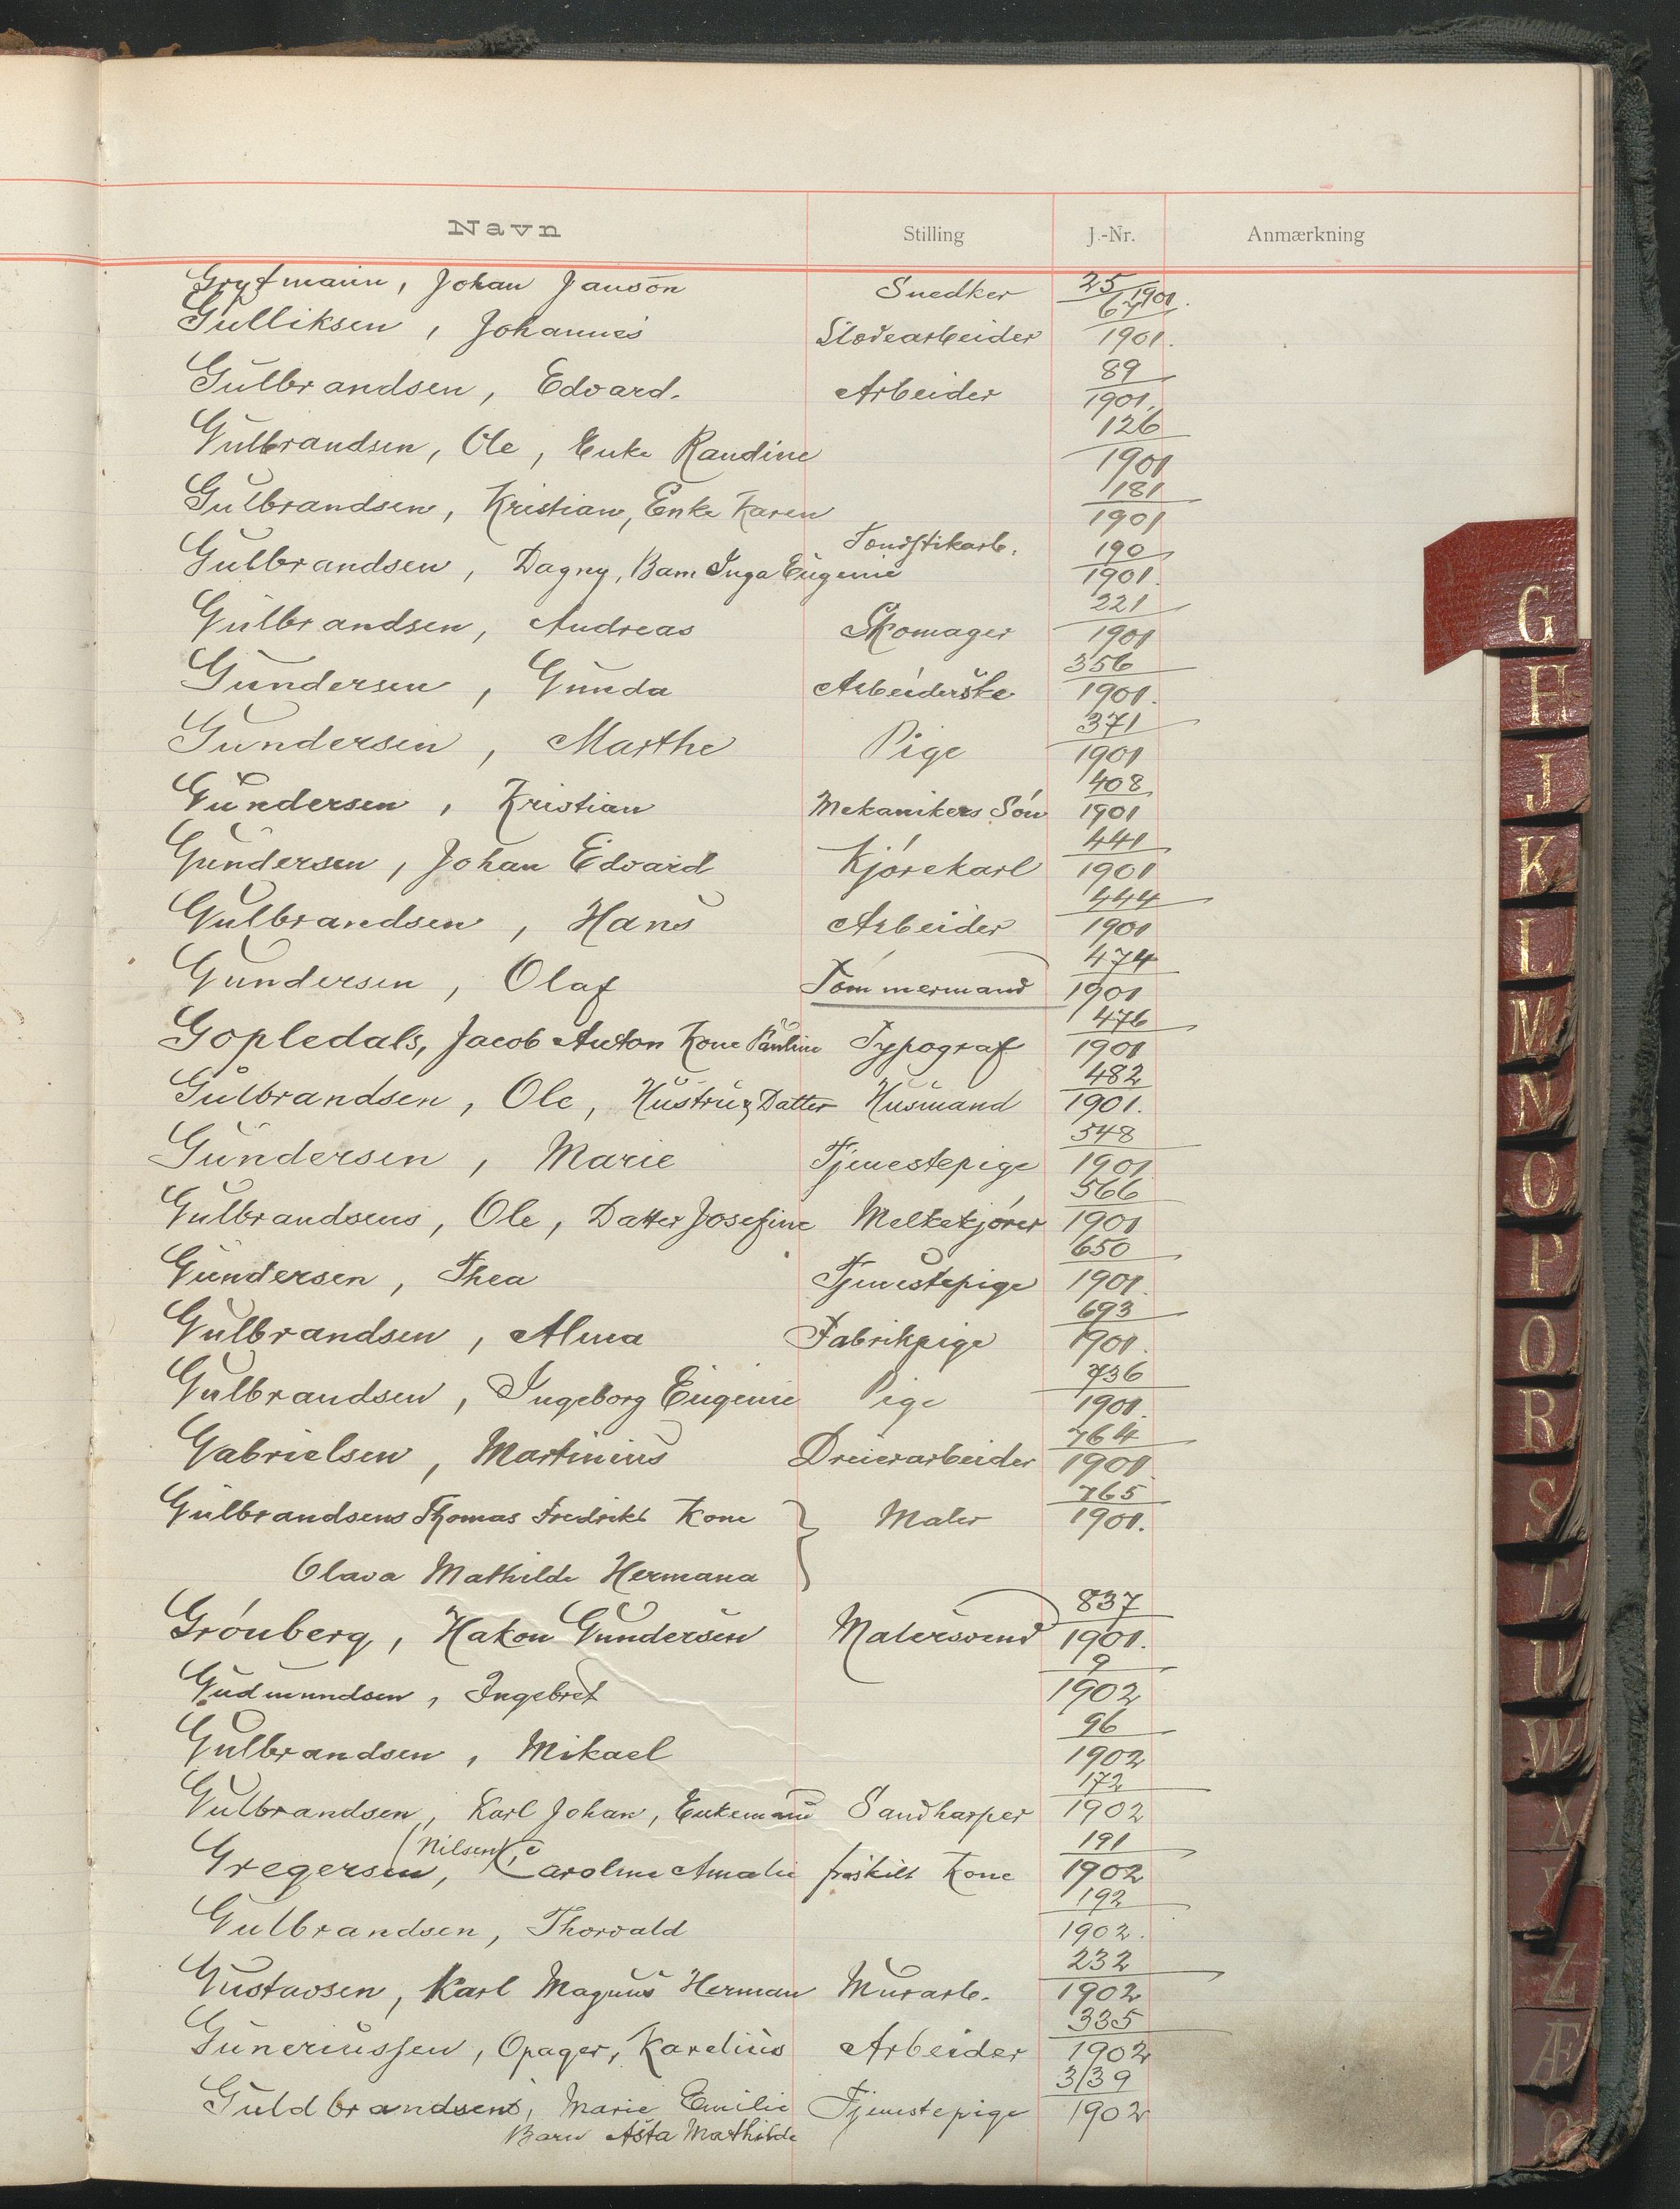 Navn Stilling J.-Nr. Anmærkning
Johan Janson Snedker 25/1901.
Gulliksen, Johannes 67/1901.
Gulbrandsen, Edvard. Arbeider 89/1901.
Gulbrandsen, Ole, Enke Randine 126/1901
Gulbrandsen, Kristian, Enke Karen 181/1901
Gulbrandsen, Dagny, Barn Inga Eugenie 190/1901.
Gulbrandsen, Andreas Skomager 221/1901
Gundersen, Gunda Arbeiderske 356/1901.
Gundersen, Marthe Pige 371/1901
Gundersen, Kristian Mekanikers Søn 408/1901
Gundersen, Johan Edvard Kjørekarl 441/1901
Gulbrandsen, Hans Arbeider 444/1901
Gundersen, Olaf Tømmermand 474/1901
Gopledals, Jacob Anton Kone Pauline Typograf 476/1901
Gulbrandsen, Ole, Hustru & Datter Husmand 482/1901.
Gundersen, Marie Tjenestepige 548/1901
Gulbrandsens, Ole, Datter Josefine Melkekjører 566/1901
Gundersen, Thea Tjenestepige 650/1901.
Gulbrandsen, Alma Fabrikpige 693/1901.
Gulbrandsen, Ingeborg Eugenie Pige 736/1901.
Gabrielsen, Martinius Dreierarbeider 764/1901.
Gulbrandsens Thomas Fredriks Kone Maler 765/1901.
Olava Mathilde Hermana
Grønberg, Hakon Gundersen Malersvend 837/1901.
Gudmundsen, Ingebret 9/1902
Gulbrandsen, Mikael 96/1902
Gulbrandsen, Karl Johan, Enkemand Sandharper 172/1902
Gregersen, (Nilsen), Caroline Amalie fraskilt Kone 191/1902
Gulbrandsen, Thorvald 192/1902.
Gustavsen, Karl Magnus Herman Murarb. 232/1902
Guneriussen, Opager, Karelius Arbeider 335/1902
Guldbrandsens, Marie Emilie Tjenestepige 3139/1902
Barn Asta Mathilde
G
H
J
K
L
M
N
O
P
Q
R
S
T
U
W
X
Z
Æ